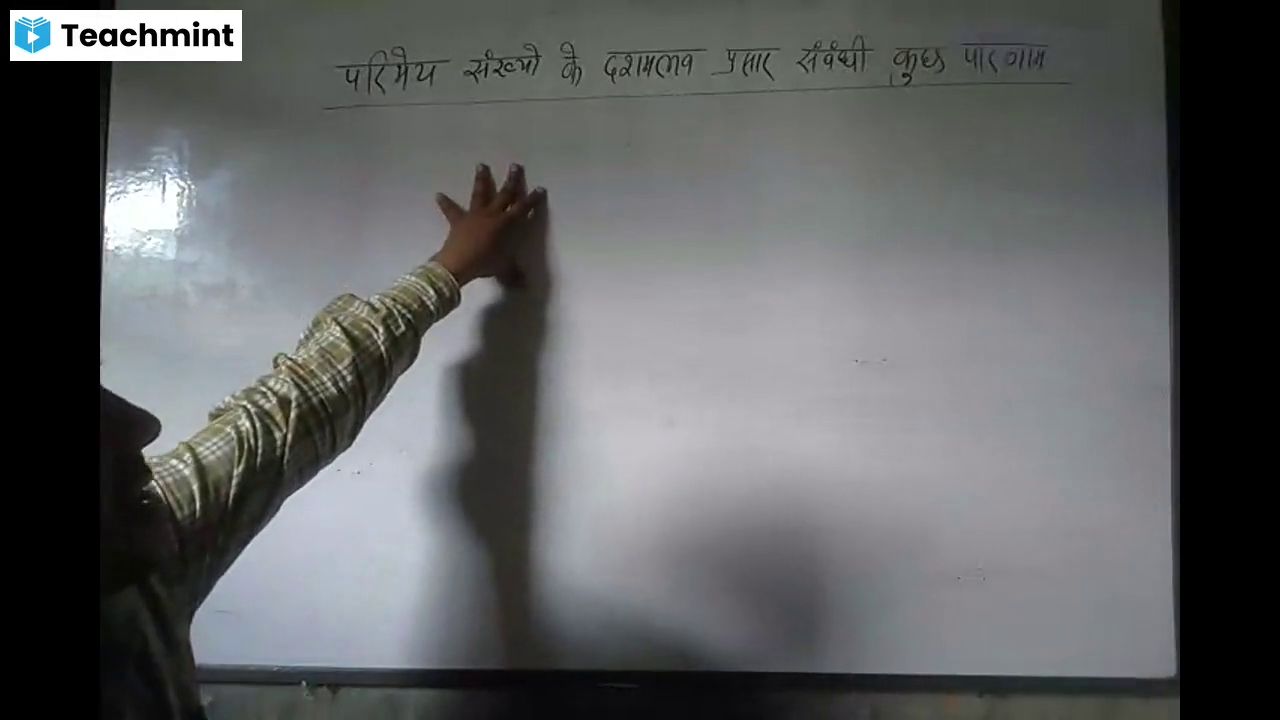 Teachmint
परिमेय संख्यो के दशमलव प्रसार संबंधी कुछ परिणाम